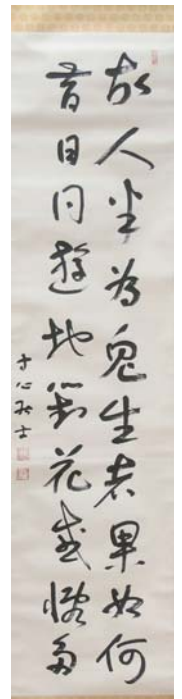 故人坐為鬼生者果如何
昔日同遊地對花感慨多
寸心居士